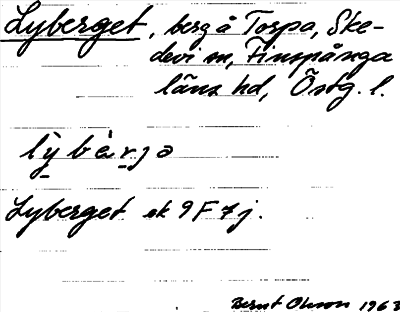 Lyberget, berg å Torpa, Ske-
devi sn, Finspånga
läns hd, Östg. l.
lỳbæ̀rjə
Lyberget ek 9F7j.
Bernt Olsson 1963